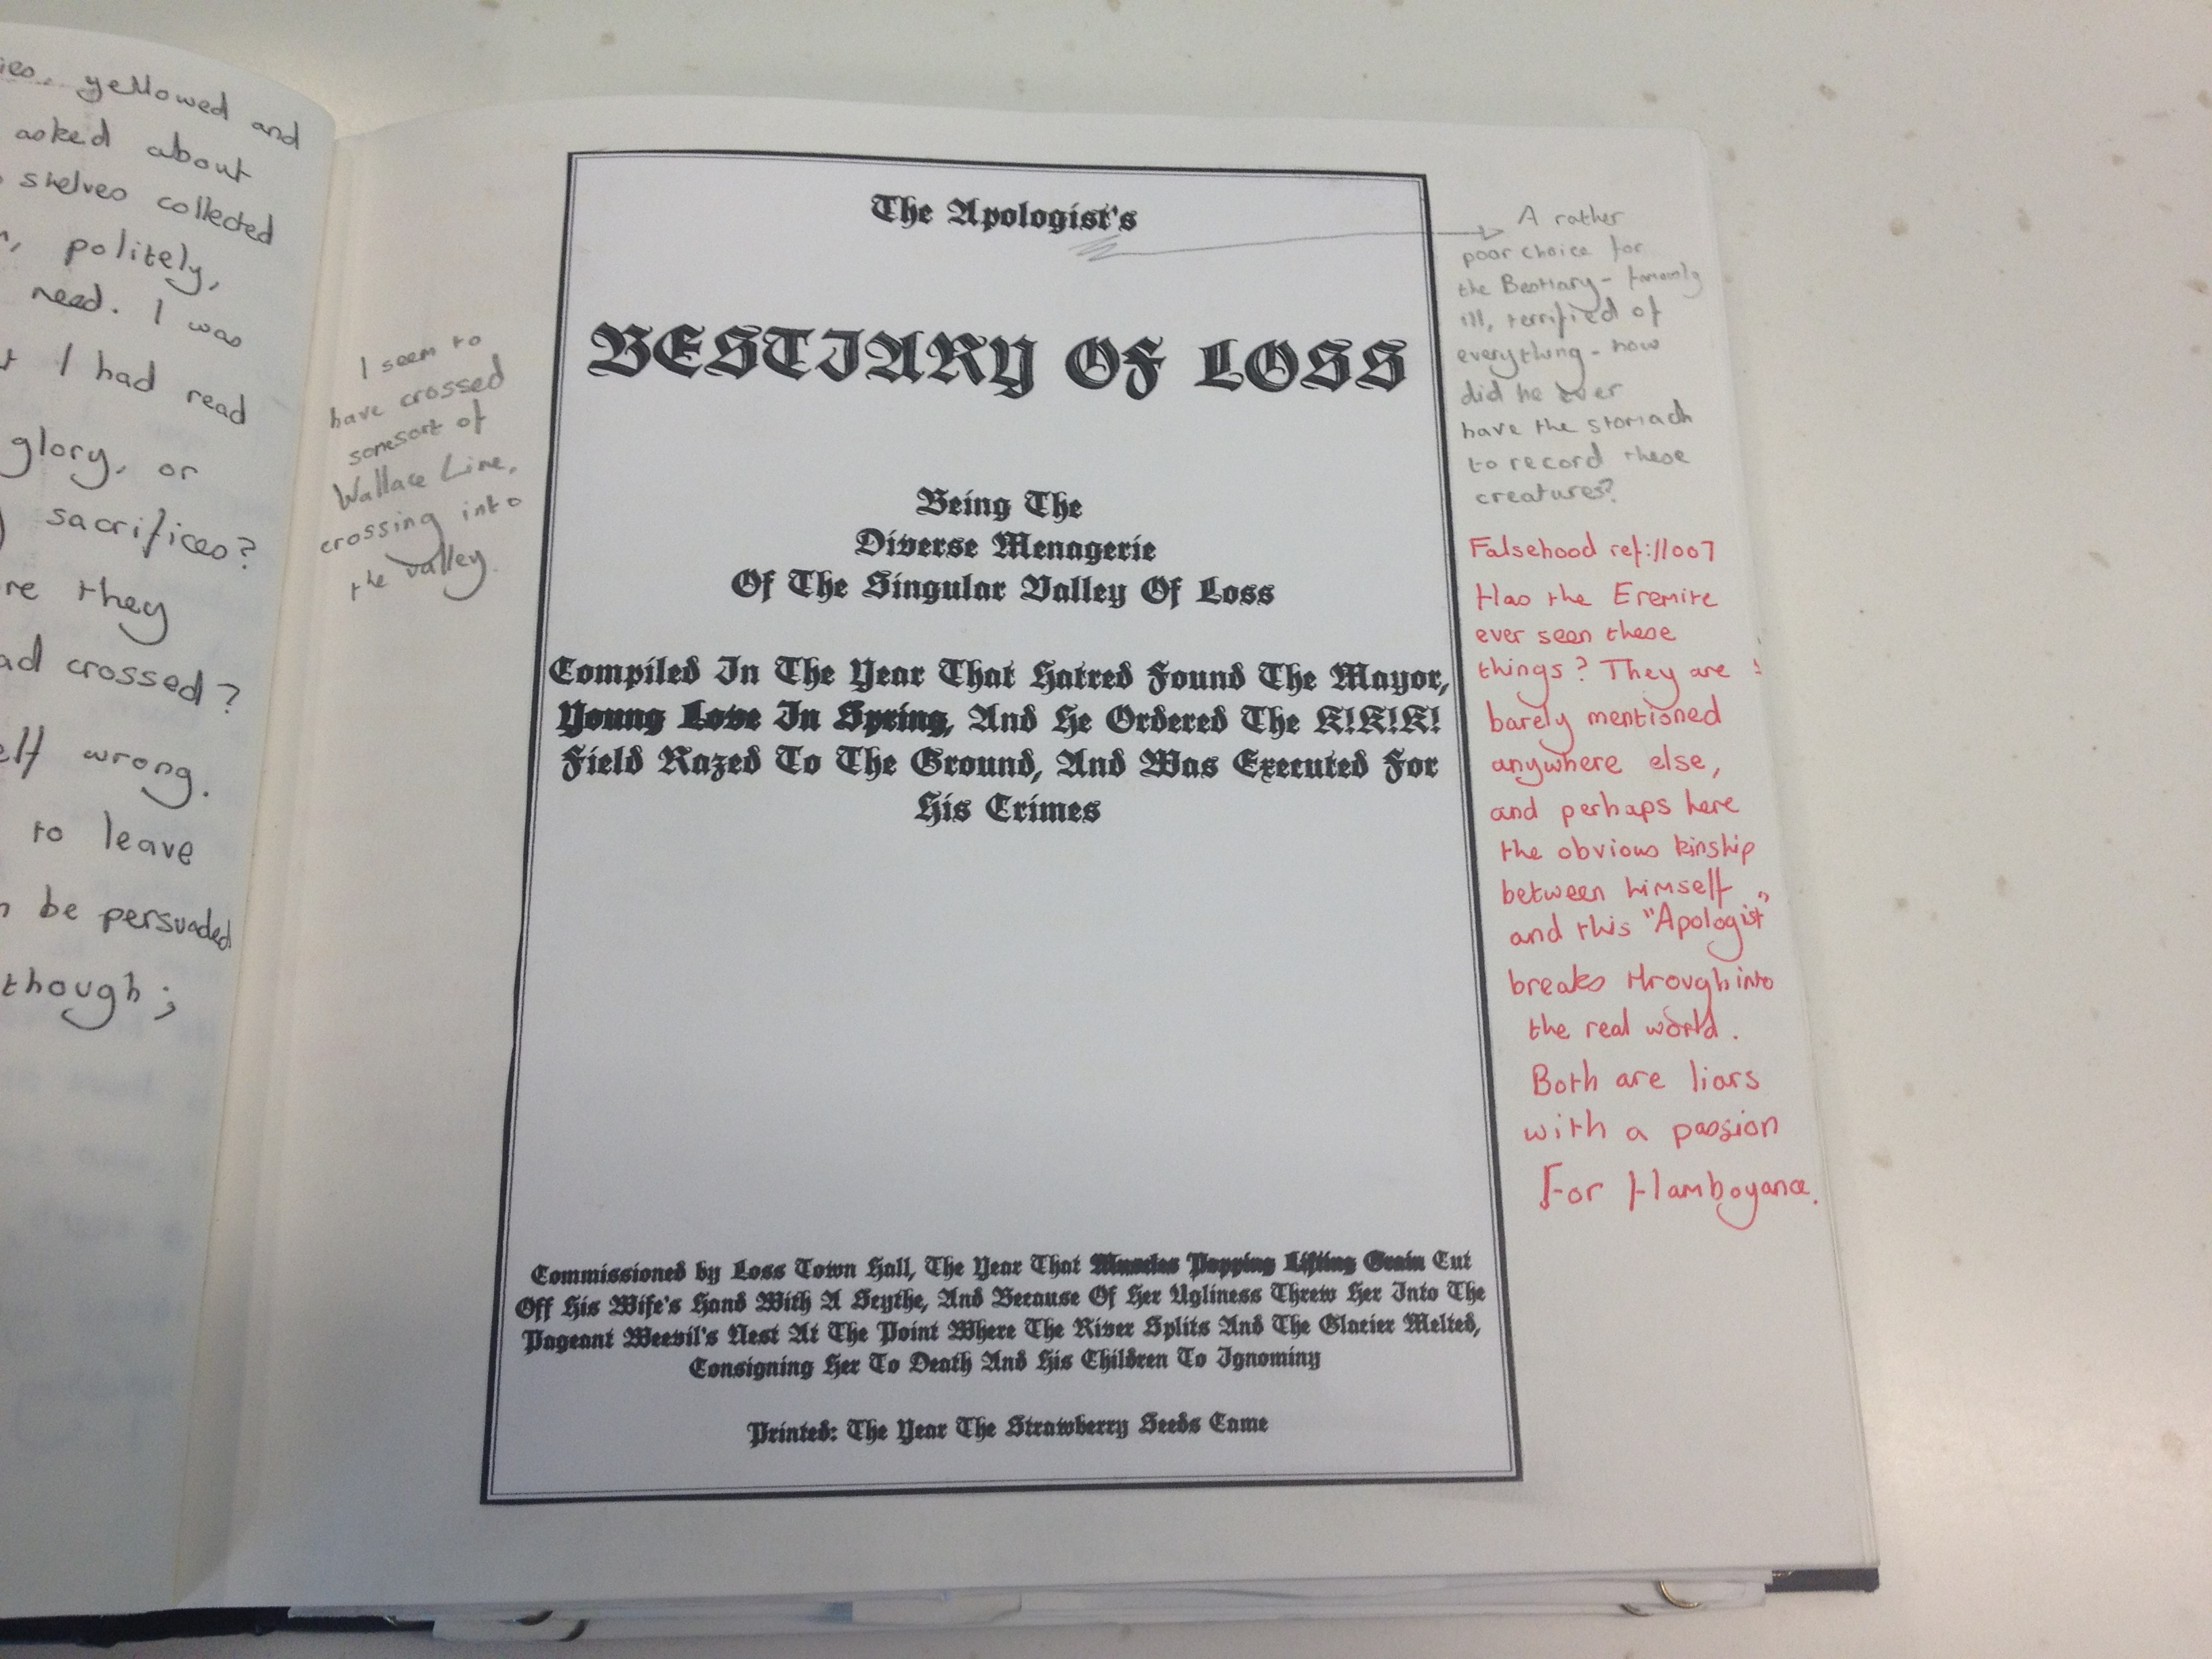 yellowed and
asked about
shelves collected
politely,
need. I was
I had read
glory, or
sacrifices?
they
crossed?
wrong.
to leave
be persuaded
though;
I seem to
have crossed
some sort of
Wallace Line,
crossing into
the valley.
The Apologist's
BESTIARY OF LOSS
Being The
Diverse Menagerie
Of The Singular Valley Of Loss
Compiled In The Year That Hatred Found The Mayor,
Young Love In Spring, And He Ordered The K!K!K!
Field Razed To The Ground, And Was Executed For
His Crimes
Commissioned by Loss Town Hall, The Year That Muscles Popping Lifting Grain Cut
Off His Wife's Hand With A Scythe, And Because Of Her Ugliness Threw Her Into The
Pageant Weevil's Nest At The Point Where The River Splits And The Glacier Melted,
Consigning Her To Death And His Children To Ignominy
Printed: The Year The Strawberry Seeds Came
A rather
poor choice for
the Bestiary - famously
ill, terrified of
everything - how
did he ever
have the stomach
to record these
creatures?
Falsehood ref://007
Has the Eremite
ever seen these
things? They are
barely mentioned
anywhere else,
and perhaps here
the obvious kinship
between himself
and this "Apologist"
breaks through into
the real world.
Both are liars
with a passion
For flamboyance.